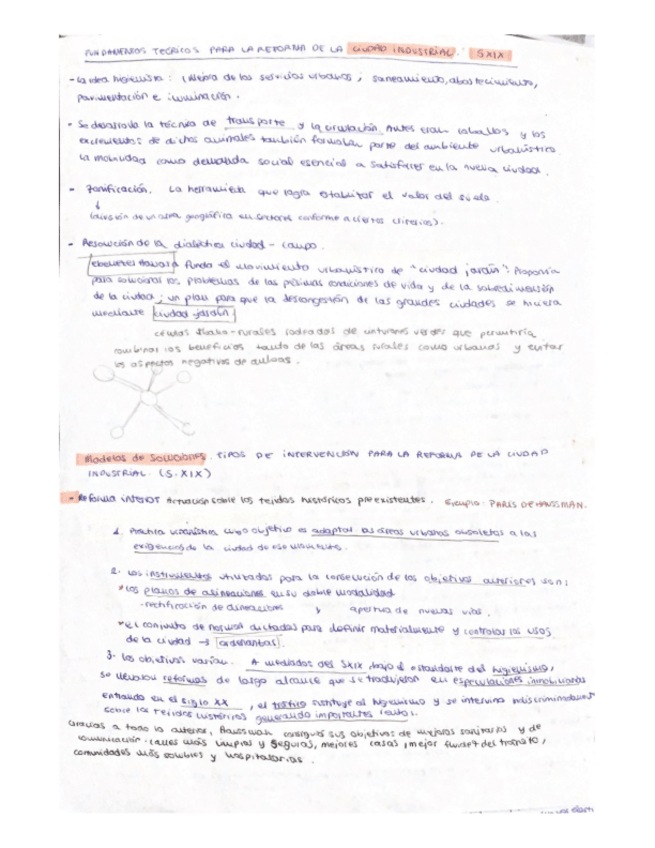 FUNDAMENTOS TEÓRICOS PARA LA REFORMA DE LA CIUDAD INDUSTRIAL. SXIX
- La idea higienista: (Mejora de los servicios urbanos; saneamiento, abastecimiento,
pavimentación e iluminación.
- Se desarrolla la técnica de transporte y la circulación. Antes eran caballos y los
excrementos de dichos animales también formaban parte del ambiente urbanístico
la movilidad como demanda social esencial a satisfacer en la nueva ciudad.
- Zonificación. La herramienta que logra estabilizar el valor del suelo.
↓
(división de un área geográfica en sectores conforme a ciertos criterios).
- Resolución de la dialéctica ciudad - campo.
Ebenezer Howard funda el movimiento urbanístico de "ciudad jardín". Proponía
para solucionar los problemas de las pésimas condiciones de vida y de la
de la ciudad; un plan para que la descongestión de las grandes ciudades se hiciera
mediante ciudad jardín
células urbano-rurales rodeadas de unturones verdes que permitiría
combinar los beneficios tanto de las áreas rurales como urbanas y evitar
los aspectos negativos de aubas.
Modelos de soluciones. TIPOS DE INTERVENCIÓN PARA LA REFORMA DE LA CIUDAD
INDUSTRIAL. (S. XIX)
- Reforma interior Actuación sobre los tejidos históricos preexistentes. Ejemplo: PARÍS DE HAUSSMAN.
1. Práctica urbanística cuyo objetivo es adaptar las áreas urbanas obsoletas a las
exigencias de la ciudad de ese momento.
2. Los instrumentos utilizados para la consecución de los objetivos anteriores son:
* Los planos de alineaciones en su doble modalidad
- rectificación de alineaciones y apertura de nuevas vías.
* el conjunto de normas dictadas para definir materialmente y controlar los usos
de la ciudad → ordenanzas.
3. Los objetivos varían. A mediados del SXIX bajo el estandarte del higienismo,
se llevaron reformas de largo alcance que se tradujeron en especulaciones inmobiliarias
entrando en el siglo XX, el tráfico sustituye al higienismo y se interviene indiscriminadamente
sobre los tejidos históricos generando importantes
Gracias a todo lo anterior, Haussman consiguió sus objetivos de mejoras sanitarias y de
comunicación - calles más limpias y seguras, mejores casas, mejor fluidez del tránsito,
comunidades más nobles y hospitalarias.